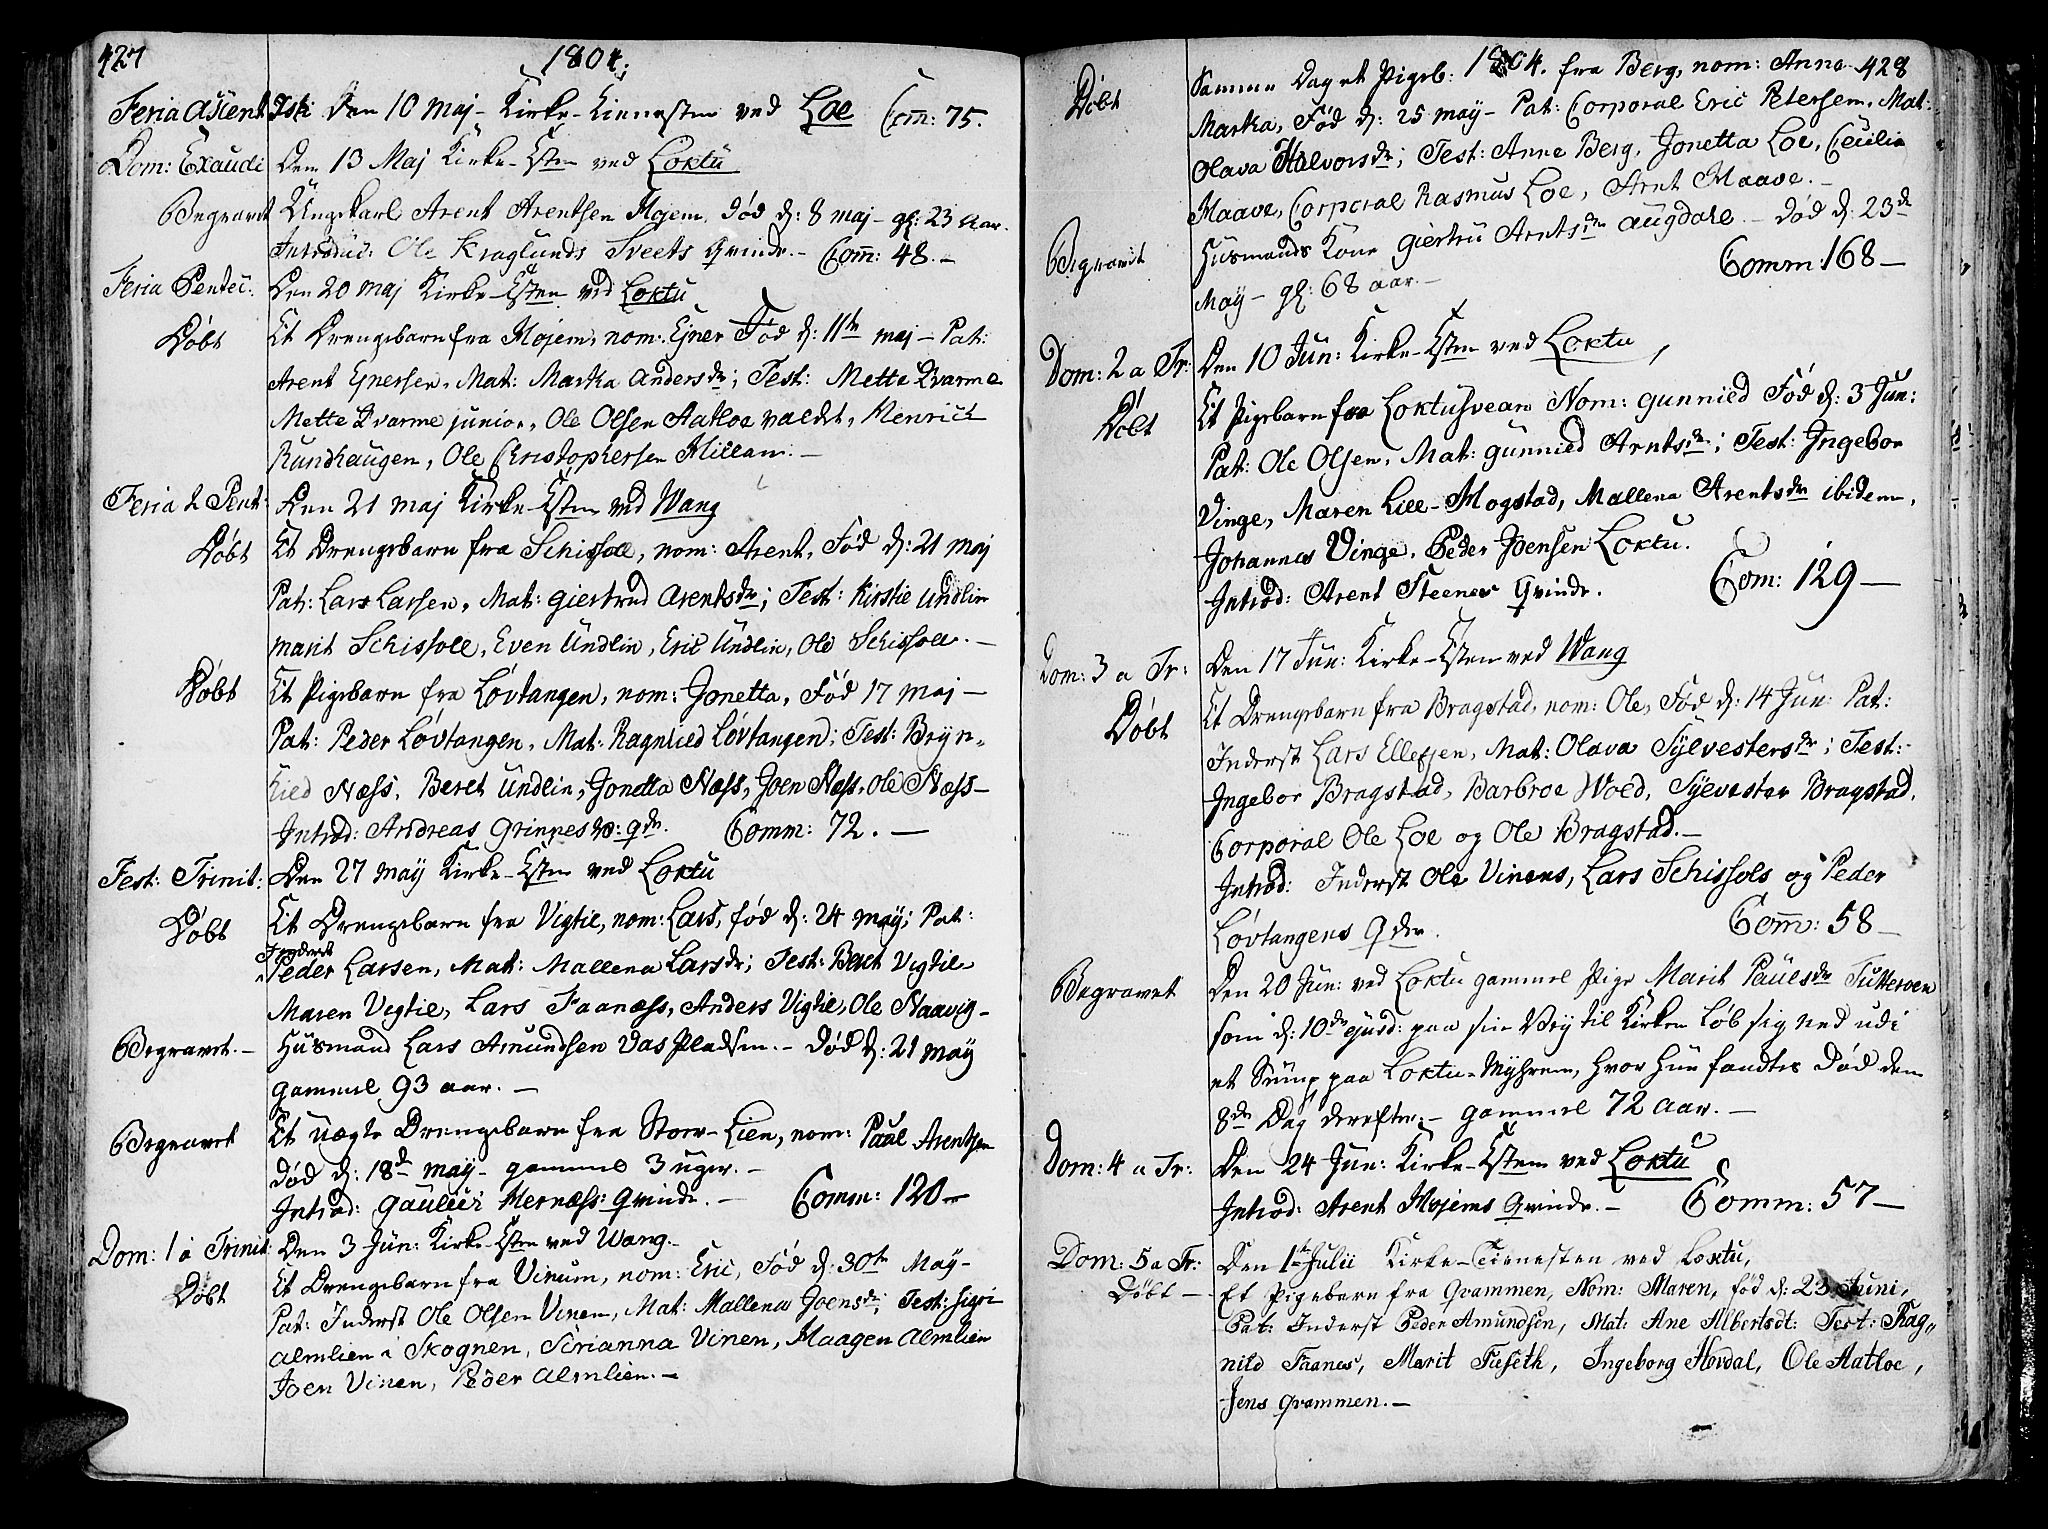 427
1804.
Feria Ascent. Jski Den 10 Maj - Kirke-Tienesten ved Loe Com̄: 75.
Dom: Exaudi Den 13 Maj Kirke-Tsten ved Loktu
Begravet Ungekarl Arent Arentsen Mojem, død d: 8 maj - gl: 23 Aar.
Introduc: Ole Kraglunds Sveets Qvinde. - Com̄: 48. -
Feria Pentec: Den 20 Maj Kirke-Tsten ved Loktu
Døbt Et Drengebarn fra Mojem, nom: Ejner Fød d: 11te maj - Pat:
Arent Ejnersen, Mat: Marta Andersdr; Test: Mette Kvarme
Mette Kvarme junior, Ole Olsen Aatloe valdet, Henrich
Rundhaugen, Ole Christophersen Millam. -
Feria 2 Pent: Den 21 Maj Kirke-Tsten ved Wang
Døbt Et Drengebarn fra Schissoll, nom: Arent, Fød d: 21 Maj
Pat: Lars Larsen, Mat: giertrud Arentsdr; Test: Kirstie Undlin
Marit Schissoll, Even Undlin, Eric Undlin, Ole Schissoll. -
Døbt Et Pigebarn fra Løvtangen, nom: Jonetta, Fød 17 Maj -
Pat: Peder Løvtangen, Mat: Ragnlied Løvtangen; Test: Bryn-
hied Næss, Beret Undlin, Jonetta Næss, Joen Næss, Ole Næss -
Introd: Andreas Grinnesmo: qde. Comm: 72. -
Fest: Trinit: Den 27 May Kirke-Tsten ved Loktu
Døbt Et Drengebarn fra Vigtil, nom: Lars, fød d: 24 May; Pat:
Inderst
Peder Larsen, Mat: Mallena Larsdr; Test: Beret Vigtil
Maren Vigtil, Lars Faanæss, Anders Vigtil, Ole Naavig -
Begravet. - Husmand Lars Amundsen Vas Pladsen. - død d: 21 May
gammel 93 aar. -
Begravet Et uægte Drengebarn fra Storr-Lien, nom: Paul Arentsen
død d: 18d may - gammel 3 uger. -
Introd: Gaulier Hernæss: Qvinde. - Comm: 120 -
Dom: 1 a Trinit: Den 3 Jun: Kirke-Tsten ved Wang.
Døbt Et Drengebarn fra Vinum, nom: Eric, Fød d: 30te May -
Pat: Inderst Ole Olsen Vinem, Mat: Mallena Joensdr; Test: Sigri
Almlien i Skognen, Sirianna Vinen, Haagen Almlien
Joen Vinen, Peder Almlien. -
1804.
428
Døbt Samme Dag et Pigeb: fra Berg, nom: Anne
Marta, Fød d: 25 may - Pat: Corporal Eric Petersen, Mat:
Olava Halvorsdr; Test: Anne Berg, Jonetta Loe, Cecilia
Maave, Corporal Rasmus Loe, Arnt Maave. -
Begravet Husmands Kone giertru Arntsdr Augdahl - død d: 23de
May - gl: 68 aar. - Comm: 168 -
Dom: 2 a Tr: Den 10 Jun: Kirke-Tsten ved Loktu,
Døbt Et Pigebarn fra Loktusvean Nom: gunnied Fød d: 3 Jun:
Pat: Ole Olsen, Mat: gunnied Arntsdr; Test: Ingebor
Vinge, Maren Lill-Mogstad, Mallena Arentsdr ibidem,
Johannes Vinge, Peder Joensen Loktu.
Introd: Arent Steenes Qvinde. Com: 129 -
Dom: 3 a Tr: Den 17 Jun: Kirke-Tsten ved Wang
Døbt Et Drengebarn fra Bragstad, nom: Ole, Fød d: 14 Jun: Pat:
Inderst Lars Ellefsen, Mat: Olava Sylvestersdr; Test:
Ingebor Bragstad, Barbroe Woed, Sylvester Bragstad,
Corporal Ole Loe og Ole Bragstad. -
Introd: Inderst Ole Vinens, Lars Schissols og Peder
Løvtangens Qder. Com̄: 58 -
Begravet Den 20 Jun: ved Loktu gammel Pige Marit Paulsdr Tutteroen
som d: 10de ejusd: paa sin Vej til Kirken løb sig ned udi
et Sump paa Loktu-Myhren, hvor hun fandtes død den
8de Dag derefter. - gammel 72 aar. -
Dom: 4 a Tr: Den 24 Jun: Kirke-Tsten ved Loktu
Introd: Arent Mojems Qvinde. - Comm: 57 -
Dom: 5 a Tr: Den 1te Julii Kirke-Tienesten ved Loktu,
Døbt - Et Pigebarn fra Qvammen, Nom: Maren, fød d: 23 Juni,
Pat: Inderst Peder Amundsen, Mat: Ane Albertsdt: Test: Rag„
nild Faanes, Marit Fieseth, Ingeborg Hovdal, Ole Aatloe,
Jens Qvammen. -